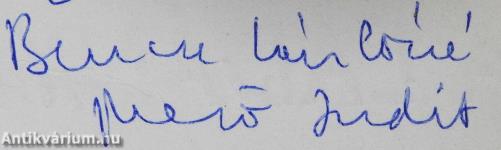 Bencze Lászlóné
Mező Judit
Antikvárium.hu